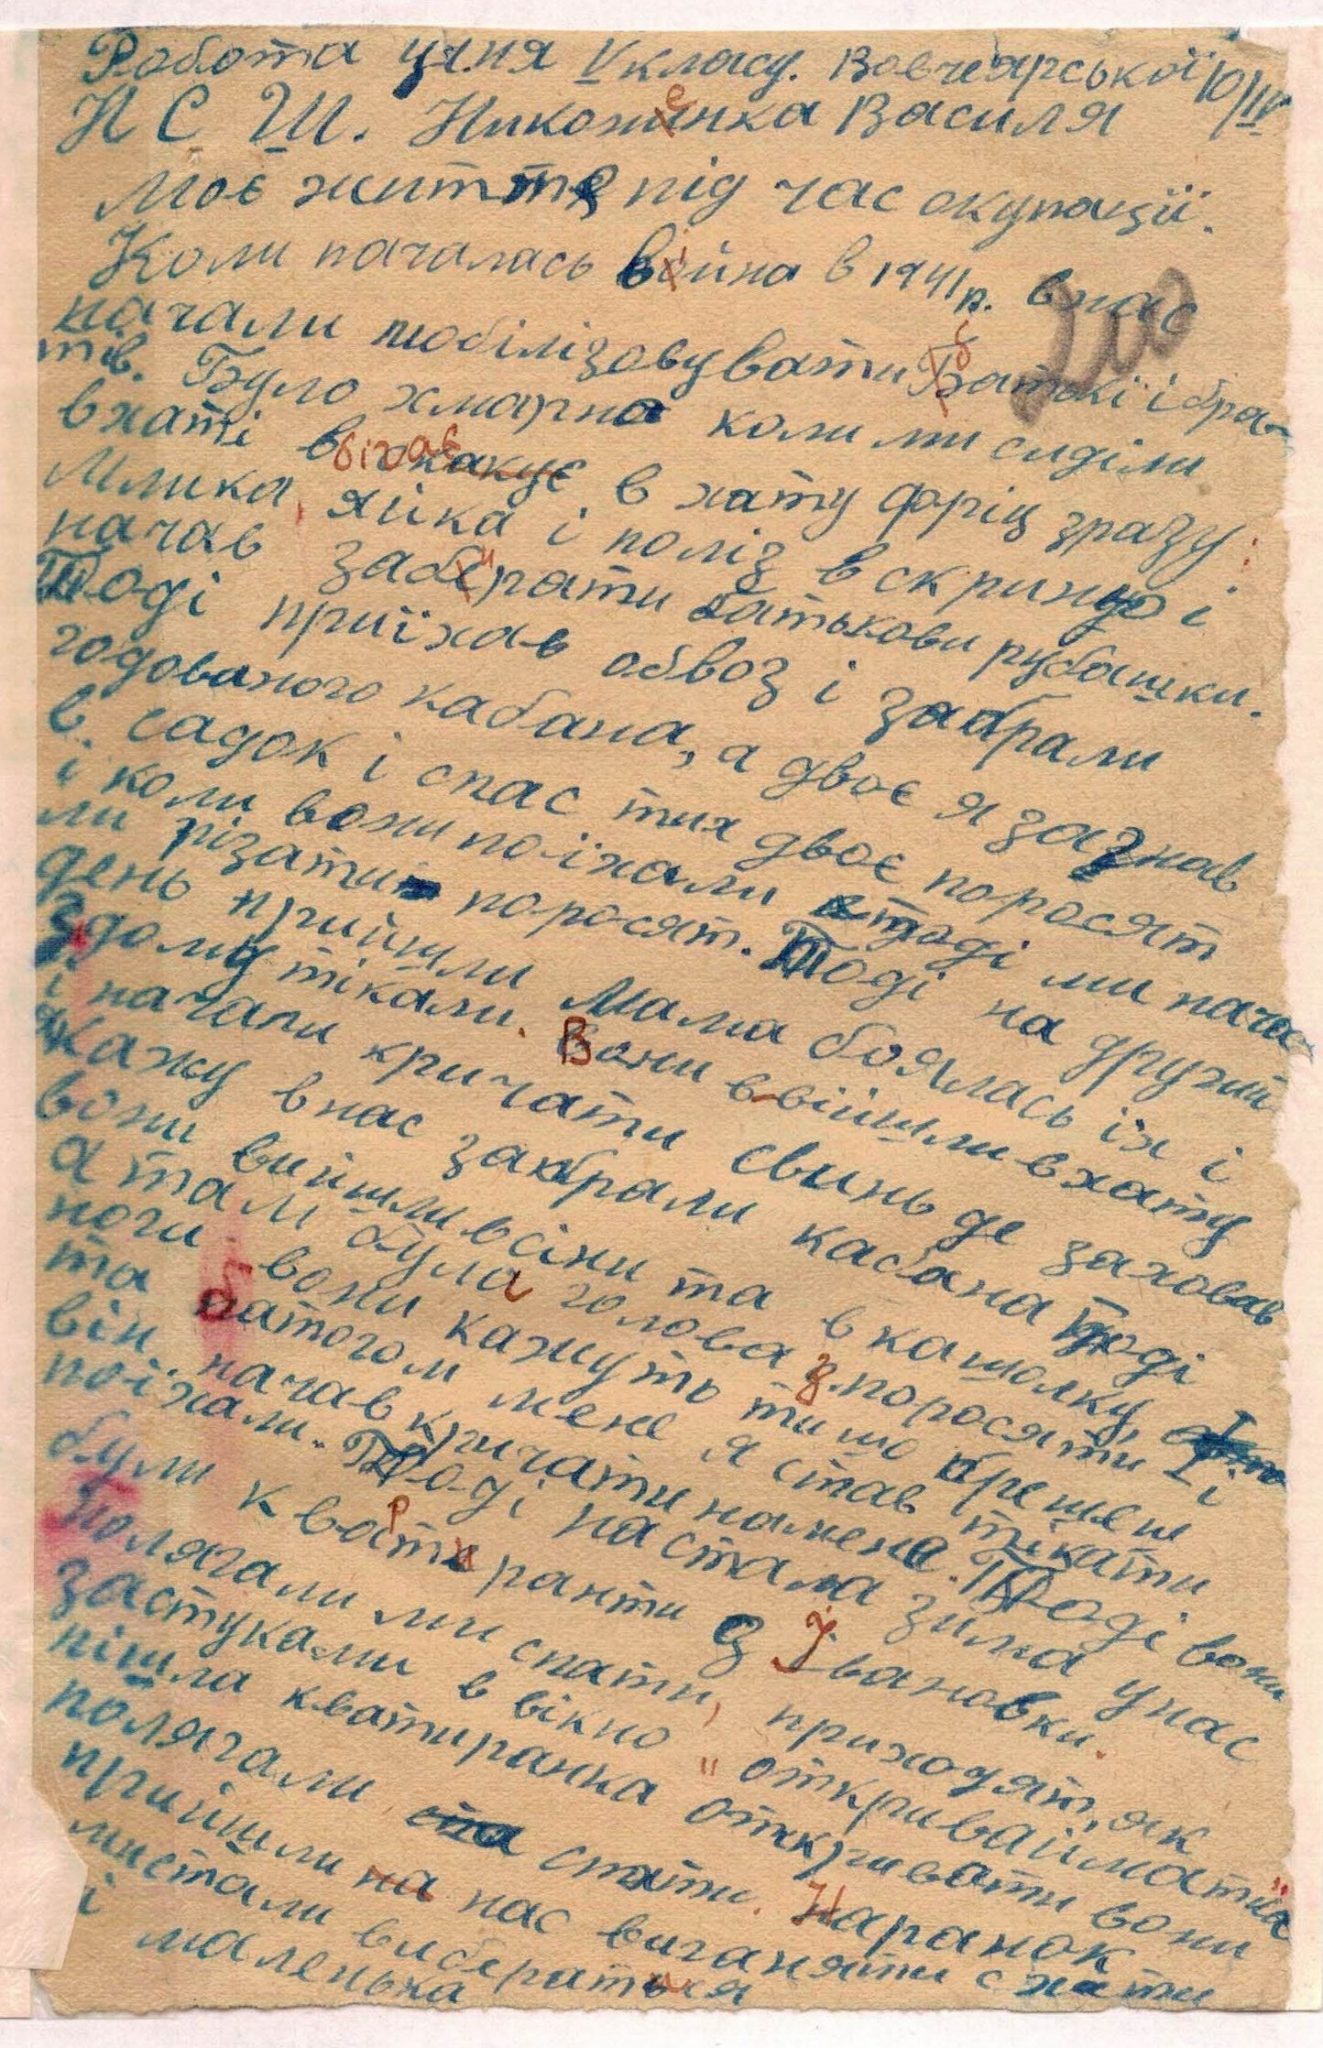 Робота учня V класу. Вовчеярської 10/IV
Н С Ш. Никоненка Василя
Моє життя під час окупації.
Коли началась війна в 1941 р. в нас
начали мобілізовувати батькі і бра-
тів. Було хмарно коли ми сиділи
в хаті вбігає в хату фріц зразу:
млика, яйка і поліз в скриню і
начав забирати батькови рубашки.
Тоді приїхав обвоз і забрали
годованого кабана, а двоє я загнав
в садок і спас тих двоє поросят
і коли вони поїхали тоді ми нача-
ли різати поросят. Тоді на другий
день прийшли Мама боялась їх і
з дому тікали. Вони ввійшли в хату
і начали кричати свинь де заховав
я кажу в нас забрали кабана тоді
вони вийшли в сіни та в кашолку,
а там була голова з поросяти і
ноги вони кажуть ти шо брешеш і
та батогом мене я став тікати
він начав кричати на мене. Тоді вони
поїхали. Тоді настала зима у нас
були квартиранти з Івановки.
Полягали ми спати, приходят, як
застукали в вікно "откривай матка
пішла кватиранка открывати вони
полягали спати. Наранок
прийшли нас виганяти с хати
ми стали вибираться
і маленька